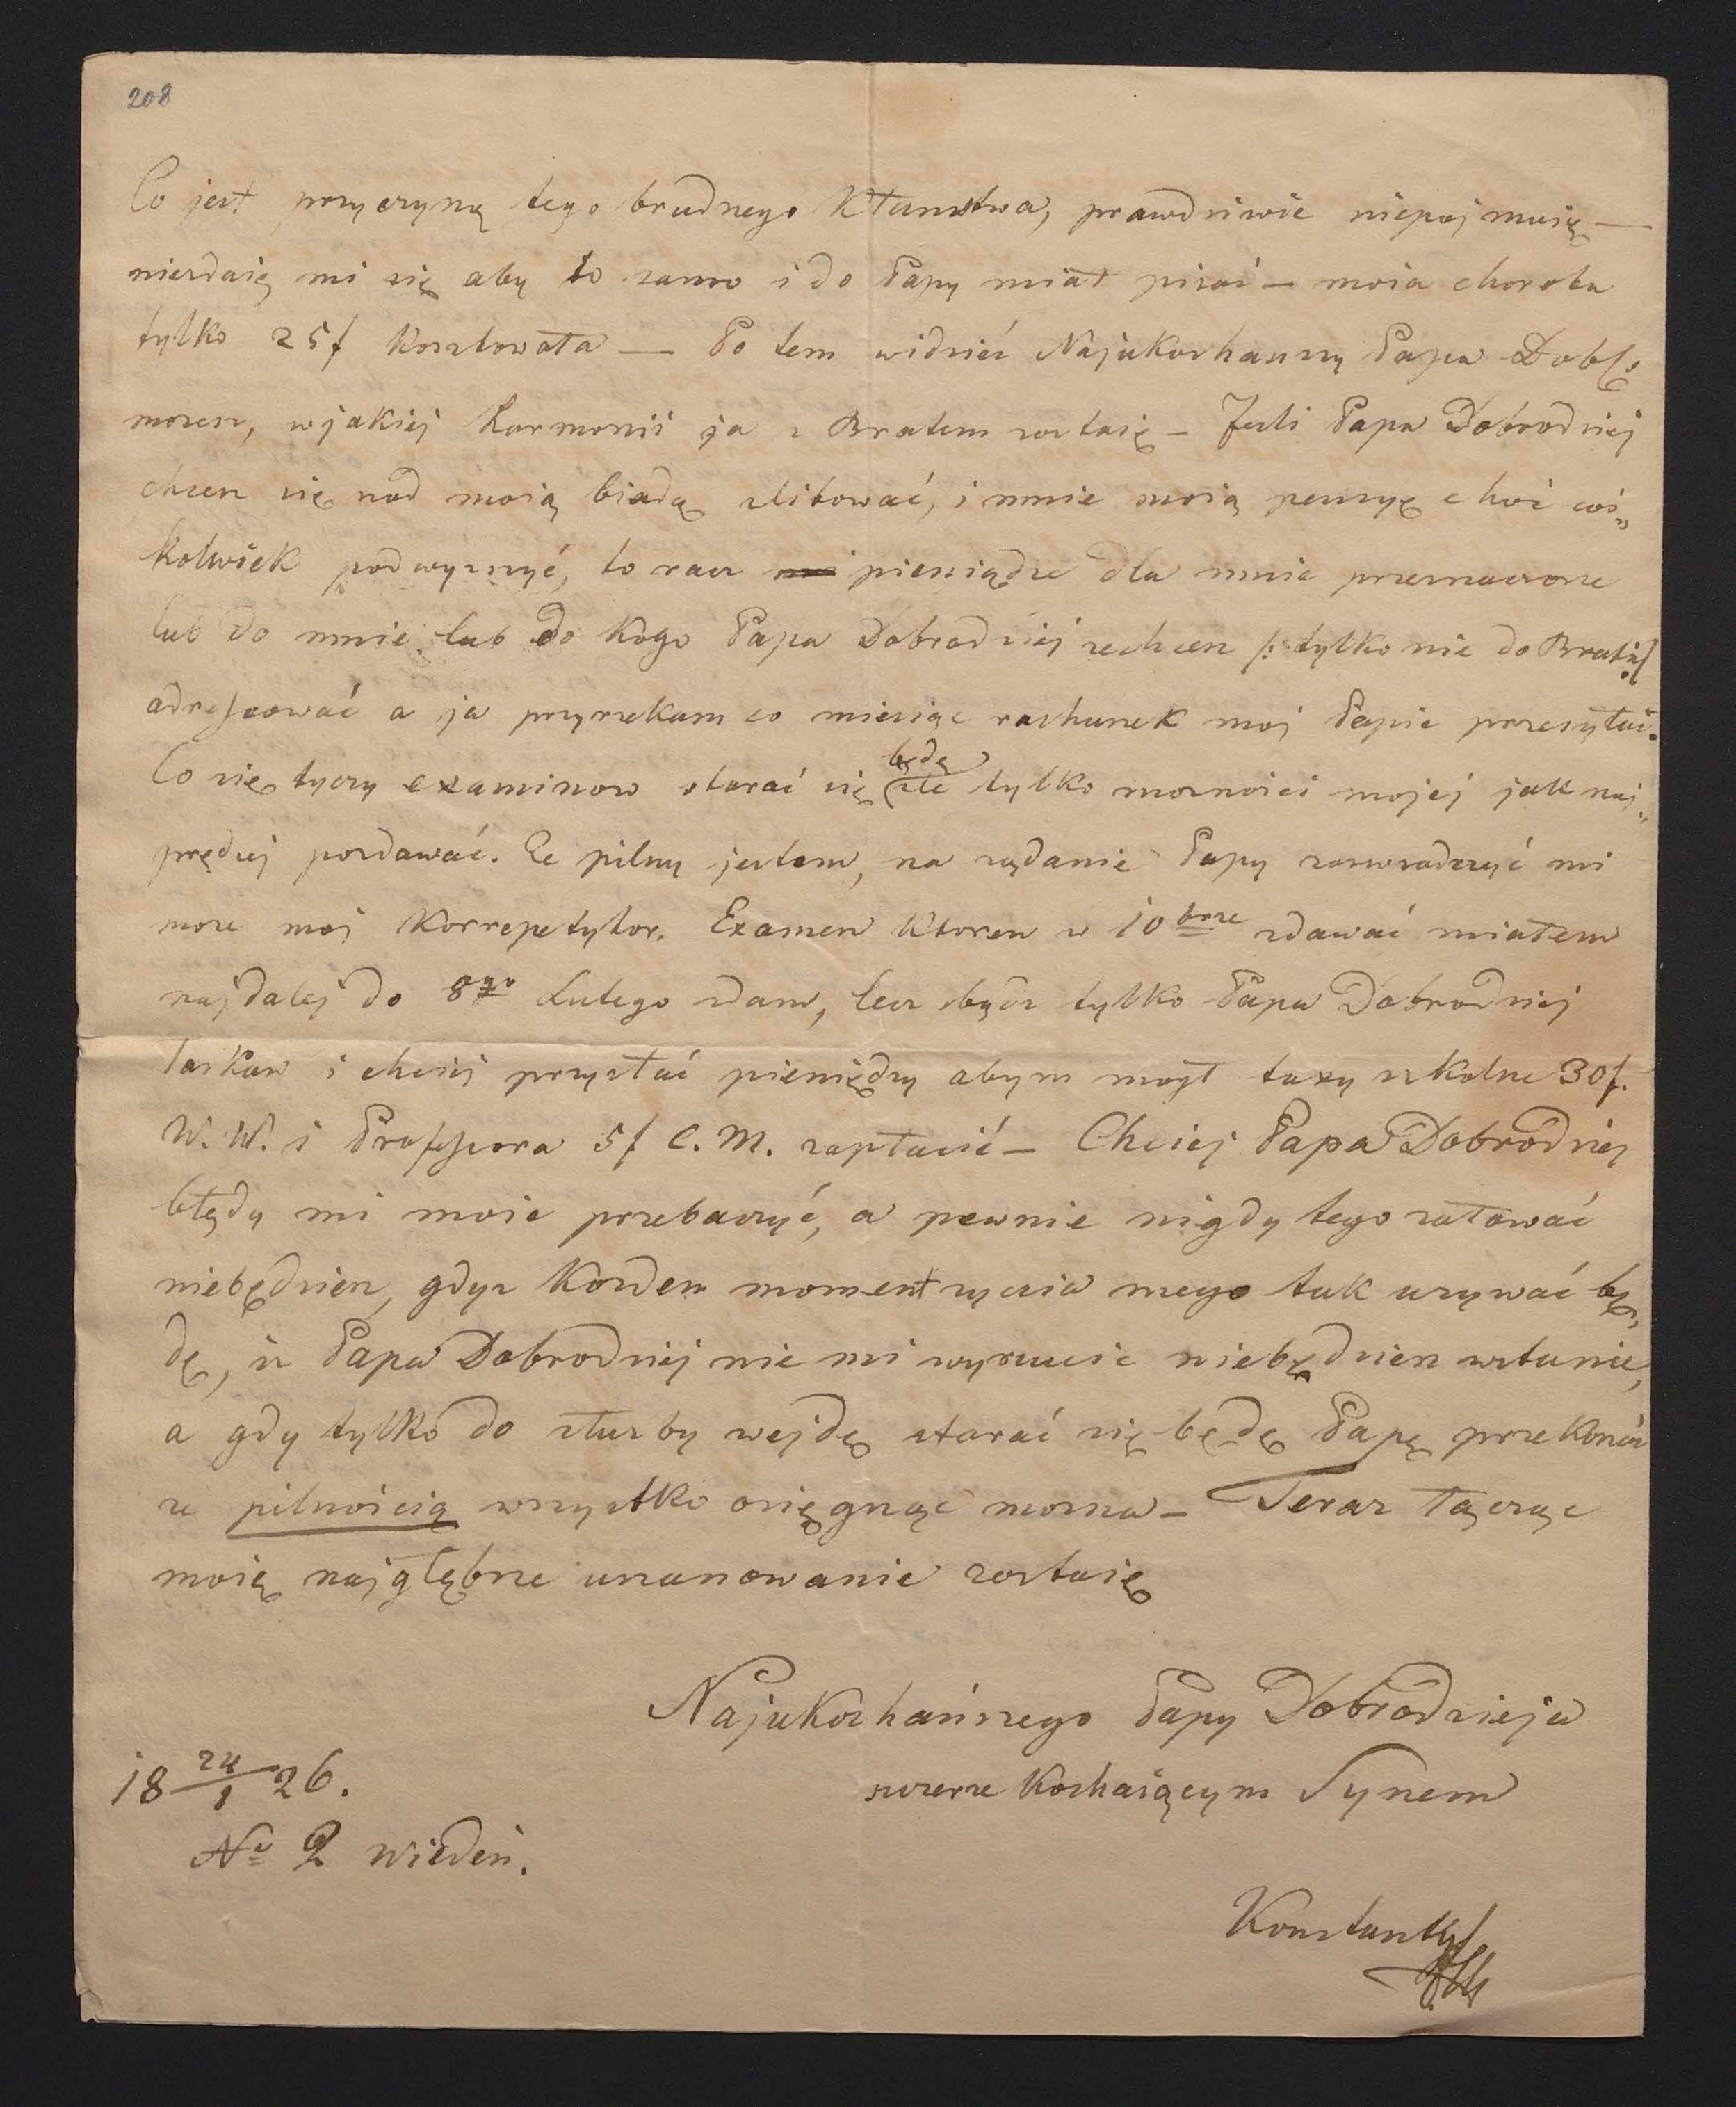 208
Co jest przyczyną tego brudnego kłamstwa, prawdziwie niepojmuię —
niezdaię mi się aby to samo i do Papy miał pisać — moia choroba
tylko 25f kosztowała — Po tem widzieć Najukochanszy Papa Dobr.
mozesz, w jakiej harmonii ja z Bratem zostaię — Jesli Papa Dobrodziej
chcesz się nad moią biadą zlitować, i mnie moią pensyę choć coś„
kolwiek podwyzszyć, to racz pieniądze dla mnie przeznaczone
lub do mnie lub do kogo Papa Dobrodziej zechcesz /: tylko nie do Brata :/
adressować a ja przyrzekam co miesiąc rachunek moj Papie przesyłać.
Co się tyczy examinow starać się będę ile tylko moznosci mojéj jak naj„
prędzej pozdawać. Ze pilny jestem, na ządanie Papy zaswiadczyć mi
moze moj Korrepetytor. Examen ktoren w 10brze zdawać miałem
najdalej do 8go Lutego zdam, lecz bądz tylko Papa Dobrodziej
laskaw i chciej przysłać pieniędzy abym mogł taxy szkolne 30f.
W. W. i Professora 5f C. M. zapłacić — Chciej Papa Dobrodziej
błędy mi moie przebaczyć, a pewnie nigdy tego załować
niebędziesz, gdyz kozden moment zycia mego tak uzywać bę„
dę, iz Papa Dobrodziej nic mi wyrzucic niebędziesz wstanie,
a gdy tylko do słuzby wejdę starać się będę Papę przekonać
ze pilnościa wszystko osięgnąć mozna — Teraz łącząc
moię najgłębsze uszanowanie zostaię
Najukochańszego Papy Dobrodzieja
szczerze kochaiącym Synem
18 24/1 26.
No 2 Wiedeń.
Konstanty